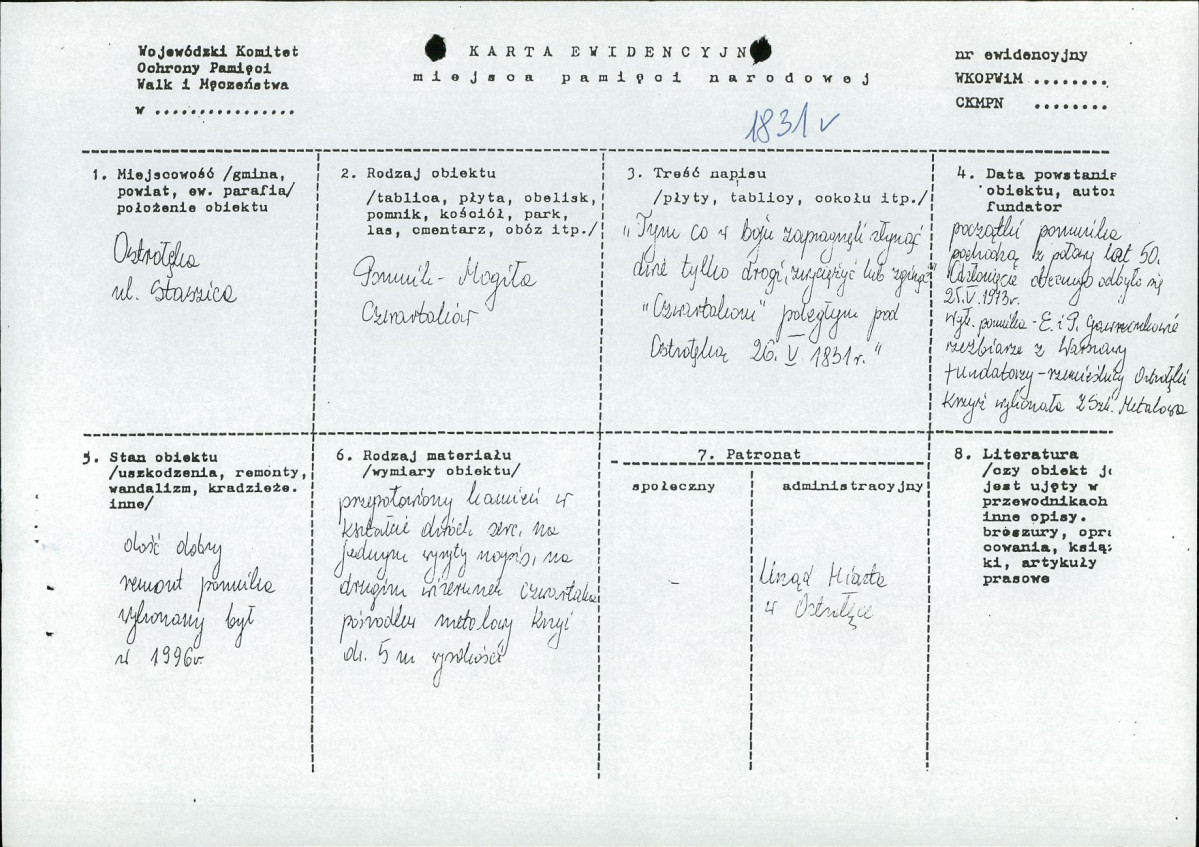 Wojewódzki Komitet
Ochrony Pamięci
Walk i Męczeństwa
w ................
KARTA EWIDENCYJN
miejsca pamięci narodowej
nr ewidencyjny
WKOPWiM ........
CKMPN ........
1831 v
1. Miejscowość /gmina,
powiat, ew. parafia/
położenie obiektu
Ostrołęka
ul. Staszica
2. Rodzaj obiektu
/tablica, płyta, obelisk,
pomnik, kościół, park,
las, cmentarz, obóz itp./
Pomnik - Mogiła
Czwartaków
3. Treść napisu
/płyty, tablicy, cokołu itp./
"Tym co w boju zapragnęli słynąć
dwie tylko drogi, zwyciężyć lub zginąć"
"Czwartakom" poległym pod
Ostrołęką 26. V 1831r."
4. Data powstanie
obiektu, autor
fundator
początki pomnika
pochodzą z połowy lat 50.
Odsłonięcie obecnego odbyło się
25.V.1973r.
Wyk. pomnika - E. i P.
rzeźbiarze z Warszawy
fundatorzy - rzemieślnicy Ostrołęki
Krzyż wykonała Z.Szk. Metalowa
5. Stan obiektu
/uszkodzenia, remonty,
wandalizm, kradzieże.
inne/
dość dobry
remont pomnika
wykonany był
w 1996r
6. Rodzaj materiału
/wymiary obiektu/
przepołowiony kamień w
kształcie dwóch serc, na
jednym wyryty napis, na
drugim wizerunek czwartaka
pośrodku metalowy krzyż
ok. 5 m wysokości
7. Patronat
społeczny
-
administracyjny
Urząd Miasta
w Ostrołęce
8. Literatura
/czy obiekt je
jest ujęty w
przewodnikach
inne opisy.
broszury, opra
cowania, książ
ki, artykuły
prasowe